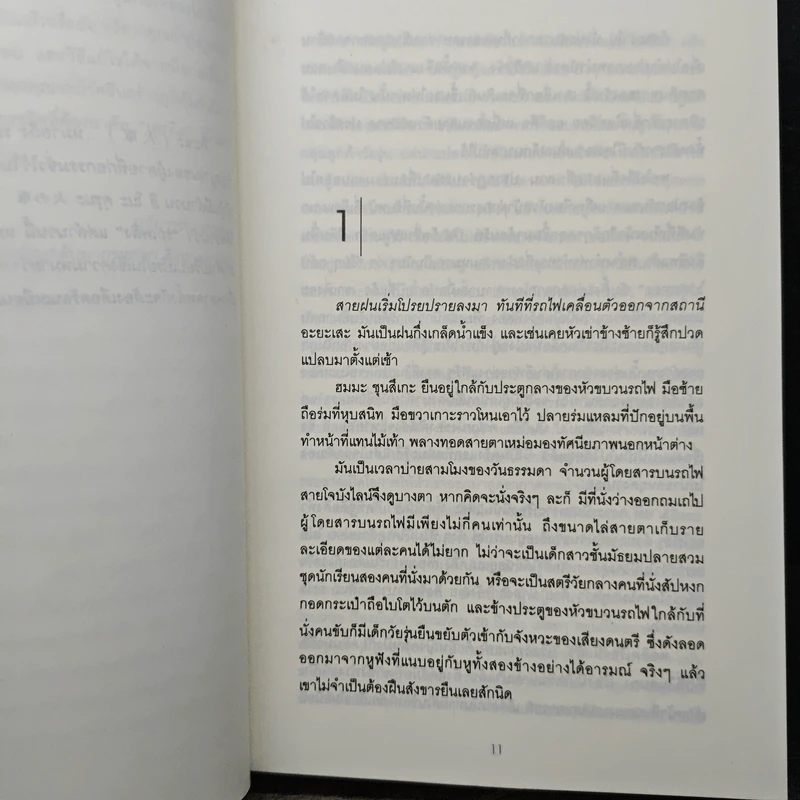 1
สายฝนเริ่มโปรยปรายลงมา ทันทีที่รถไฟเคลื่อนตัวออกจากสถานี
อะยะเสะ มันเป็นฝนกึ่งเกล็ดน้ำแข็ง และเช่นเคยหัวเข่าข้างซ้ายก็รู้สึกปวด
แปลบมาตั้งแต่เช้า
ฮมมะ ชุนสึเกะ ยืนอยู่ใกล้กับประตูกลางของหัวขบวนรถไฟ มือซ้าย
ถือร่มที่หุบสนิท มือขวาเกาะราวโหนเอาไว้ ปลายร่มแหลมที่ปักอยู่บนพื้น
ทำหน้าที่แทนไม้เท้า พลางทอดสายตาเหม่อมองทัศนียภาพนอกหน้าต่าง
มันเป็นเวลาบ่ายสามโมงของวันธรรมดา จำนวนผู้โดยสารบนรถไฟ
สายโจบังไลน์จึงดูบางตา หากคิดจะนั่งจริงๆ ละก็ มีที่นั่งว่างออกถมเถไป
ผู้โดยสารบนรถไฟมีเพียงไม่กี่คนเท่านั้น ถึงขนาดไล่สายตาเก็บราย
ละเอียดของแต่ละคนได้ไม่ยาก ไม่ว่าจะเป็นเด็กสาวชั้นมัธยมปลายสวม
ชุดนักเรียนสองคนที่นั่งมาด้วยกัน หรือจะเป็นสตรีวัยกลางคนที่นั่งสัปหงก
กอดกระเป๋าถือใบโตไว้บนตัก และข้างประตูของหัวขบวนรถไฟใกล้กับที่
นั่งคนขับก็มีเด็กวัยรุ่นยืนขยับตัวเข้ากับจังหวะของเสียงดนตรี ซึ่งดังลอด
ออกมาจากหูฟังที่แนบอยู่กับหูทั้งสองข้างอย่างได้อารมณ์ จริงๆ แล้ว
เขาไม่จำเป็นต้องฝืนสังขารยืนเลยสักนิด
11